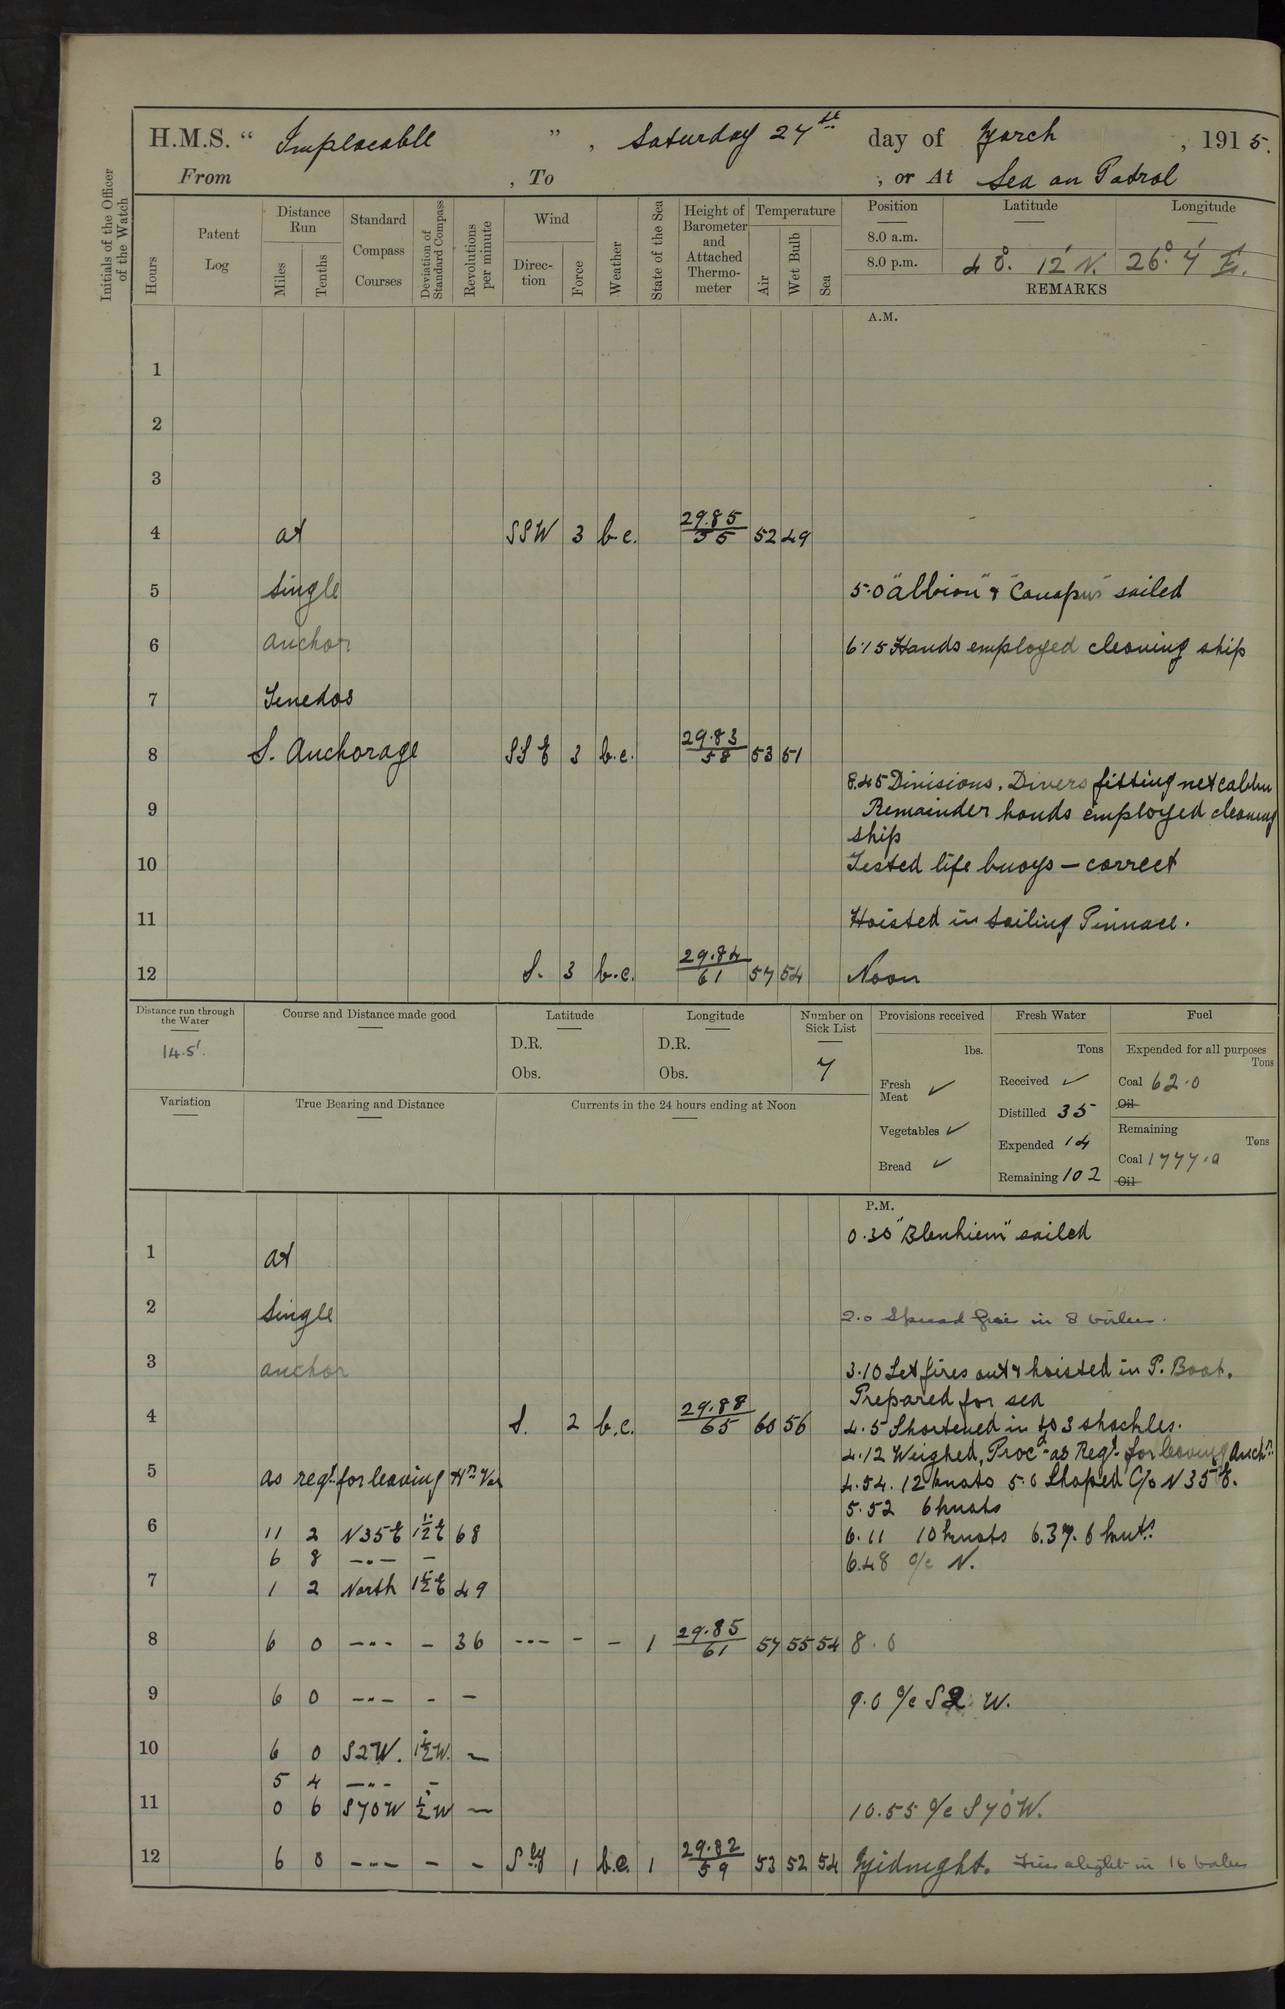 H.M.S. “ Implacable ” , Saturday 27th day of March , 1915.
From , To , or At Sea on Patrol
Initials of the Officer of the Watch
Hours
Patent Log
Distance Run
Miles
Tenths
Standard Compass Courses
Deviation of Standard Compass
Revolutions per minute
Wind
Direction
Force
Weather
State of the Sea
Height of Barometer and Attached Thermometer
Temperature
Air
Wet Bulb
Sea
Position Latitude Longitude
8.0 a.m.
8.0 p.m. 40°. 12' N. 26° 7' E.
REMARKS
A.M.
1
2
3
4 at SSW 3 b.c. 29.85/55 52 49
5 single 5.0 "Albion" & "Canopus" sailed
6 anchor 6.15 Hands employed cleaning ship
7 Tenedos
8 S. Anchorage SSE 3 b.c. 29.83/58 53 51
8.45 Divisions. Divers fitting net
9 Remainder hands employed cleaning
ship
10 Tested life buoys – correct
11 Hoisted in Sailing Pinnace.
12 S. 3 b.c. 29.84/61 57 54 Noon
Distance run through the Water
14.5'.
Course and Distance made good
Latitude
D.R.
Obs.
Longitude
D.R.
Obs.
Number on Sick List
7
Provisions received
lbs.
Fresh Meat ✓
Vegetables ✓
Bread ✓
Fresh Water
Tons
Received ✓
Distilled 35
Expended 14
Remaining 102
Fuel
Expended for all purposes
Tons
Coal 62.0
Oil
Remaining
Tons
Coal 1777.0
Oil
Variation
True Bearing and Distance
Currents in the 24 hours ending at Noon
P.M.
0.30 "Blenhiem" sailed
1 at
2 single 2.0 Spread fires in 8 boilers.
3 anchor 3.10 Let fires out & hoisted in P. Boat.
Prepared for sea
4 S. 2 b.c. 29.88/65 60 56 4.5 Shortened in to 3 shackles.
4.12 Weighed, Procd as Reqd for leaving Anchge
5 as reqd for leaving 4.54. 12 knots 5.0 Shaped C/o N35E.
5.52 6 knots
6 11 2 N35E 1½E 68 6.11 10 knots 6.37. 6 knots
6 8 –"– – 6.48 a/c N.
7 1 2 North 1½E 49
8 6 0 –"– – 36 –"– – – 1 29.85/61 57 55 54 8.0
9 6 0 –"– – – 9.0 a/c S2W.
10 6 0 S2W. 1½W. –
5 4 –"– –
11 0 6 S70W ½W – 10.55 a/c S70W.
12 6 0 –"– – – Sly 1 b.c. 1 29.82/59 53 52 54 Midnight. Fires alight in 16 boilers